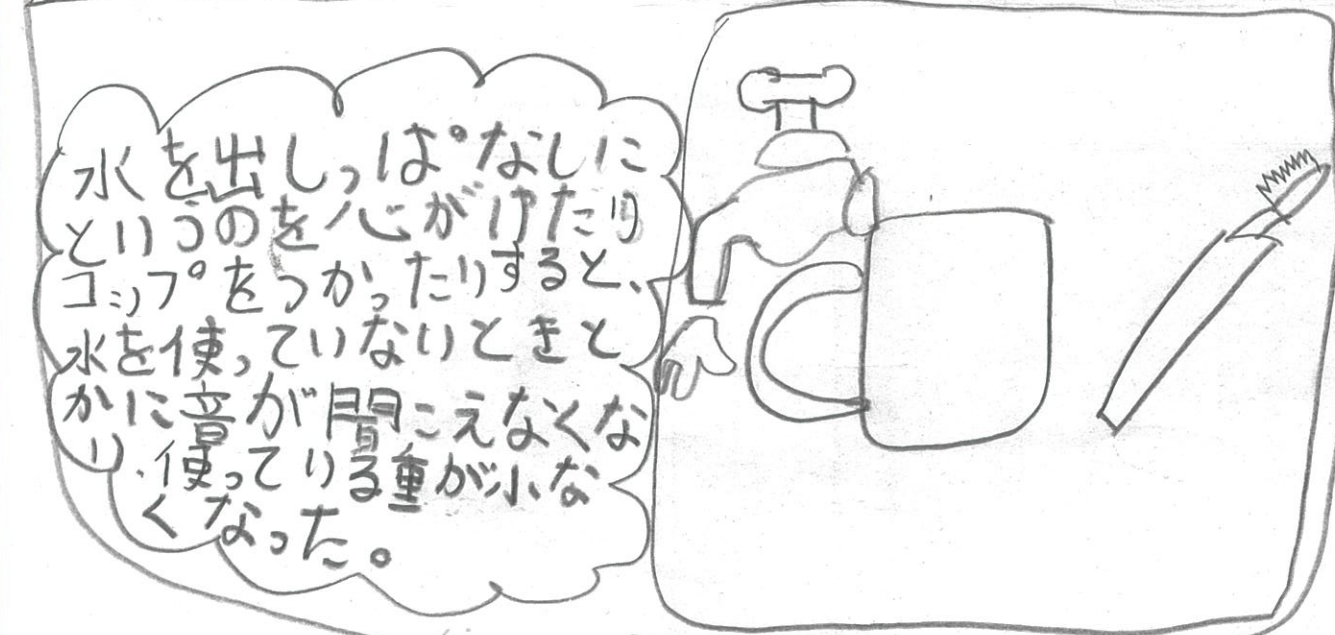 水を出しっぱなしに
というのを心がけたり
コップをつかったりすると、
水を使っていないときと
かに音が聞こえなくな
り、使っている重が小な
くなった。